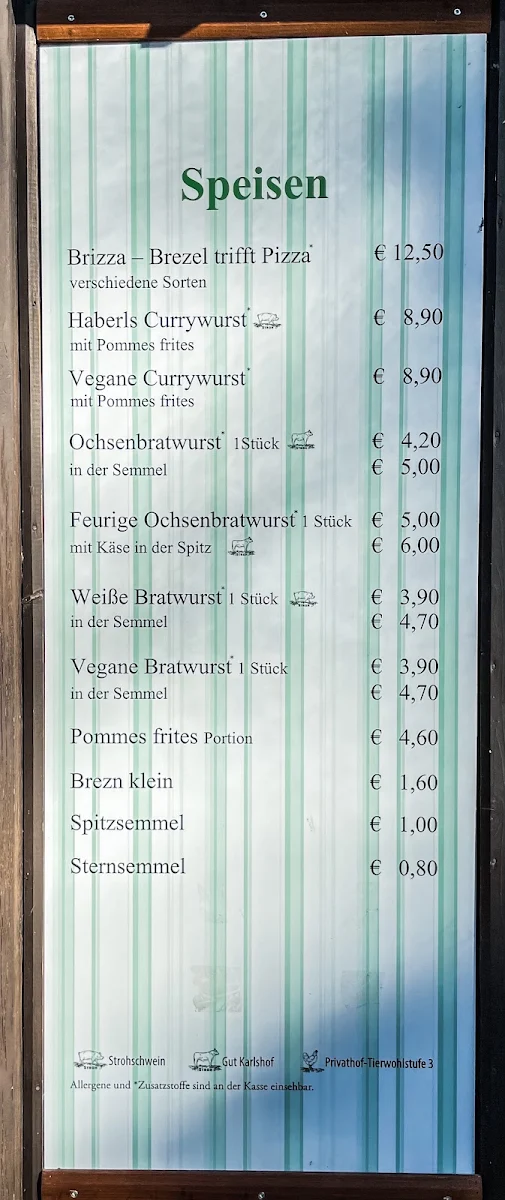 Speisen
Brizza – Brezel trifft Pizza* € 12,50
verschiedene Sorten
Haberls Currywurst* € 8,90
mit Pommes frites
Vegane Currywurst* € 8,90
mit Pommes frites
Ochsenbratwurst* 1Stück € 4,20
in der Semmel € 5,00
Feurige Ochsenbratwurst* 1 Stück € 5,00
mit Käse in der Spitz € 6,00
Weiße Bratwurst* 1 Stück € 3,90
in der Semmel € 4,70
Vegane Bratwurst* 1 Stück € 3,90
in der Semmel € 4,70
Pommes frites Portion € 4,60
Brezn klein € 1,60
Spitzsemmel € 1,00
Sternsemmel € 0,80
Strohschwein Gut Karlshof Privathof-Tierwohlstufe 3
Allergene und *Zusatzstoffe sind an der Kasse einsehbar.